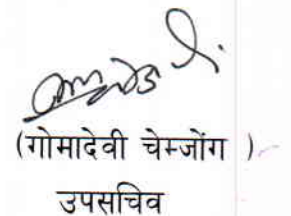 (गोमादेवी चेम्जोंग )
उपसचिव